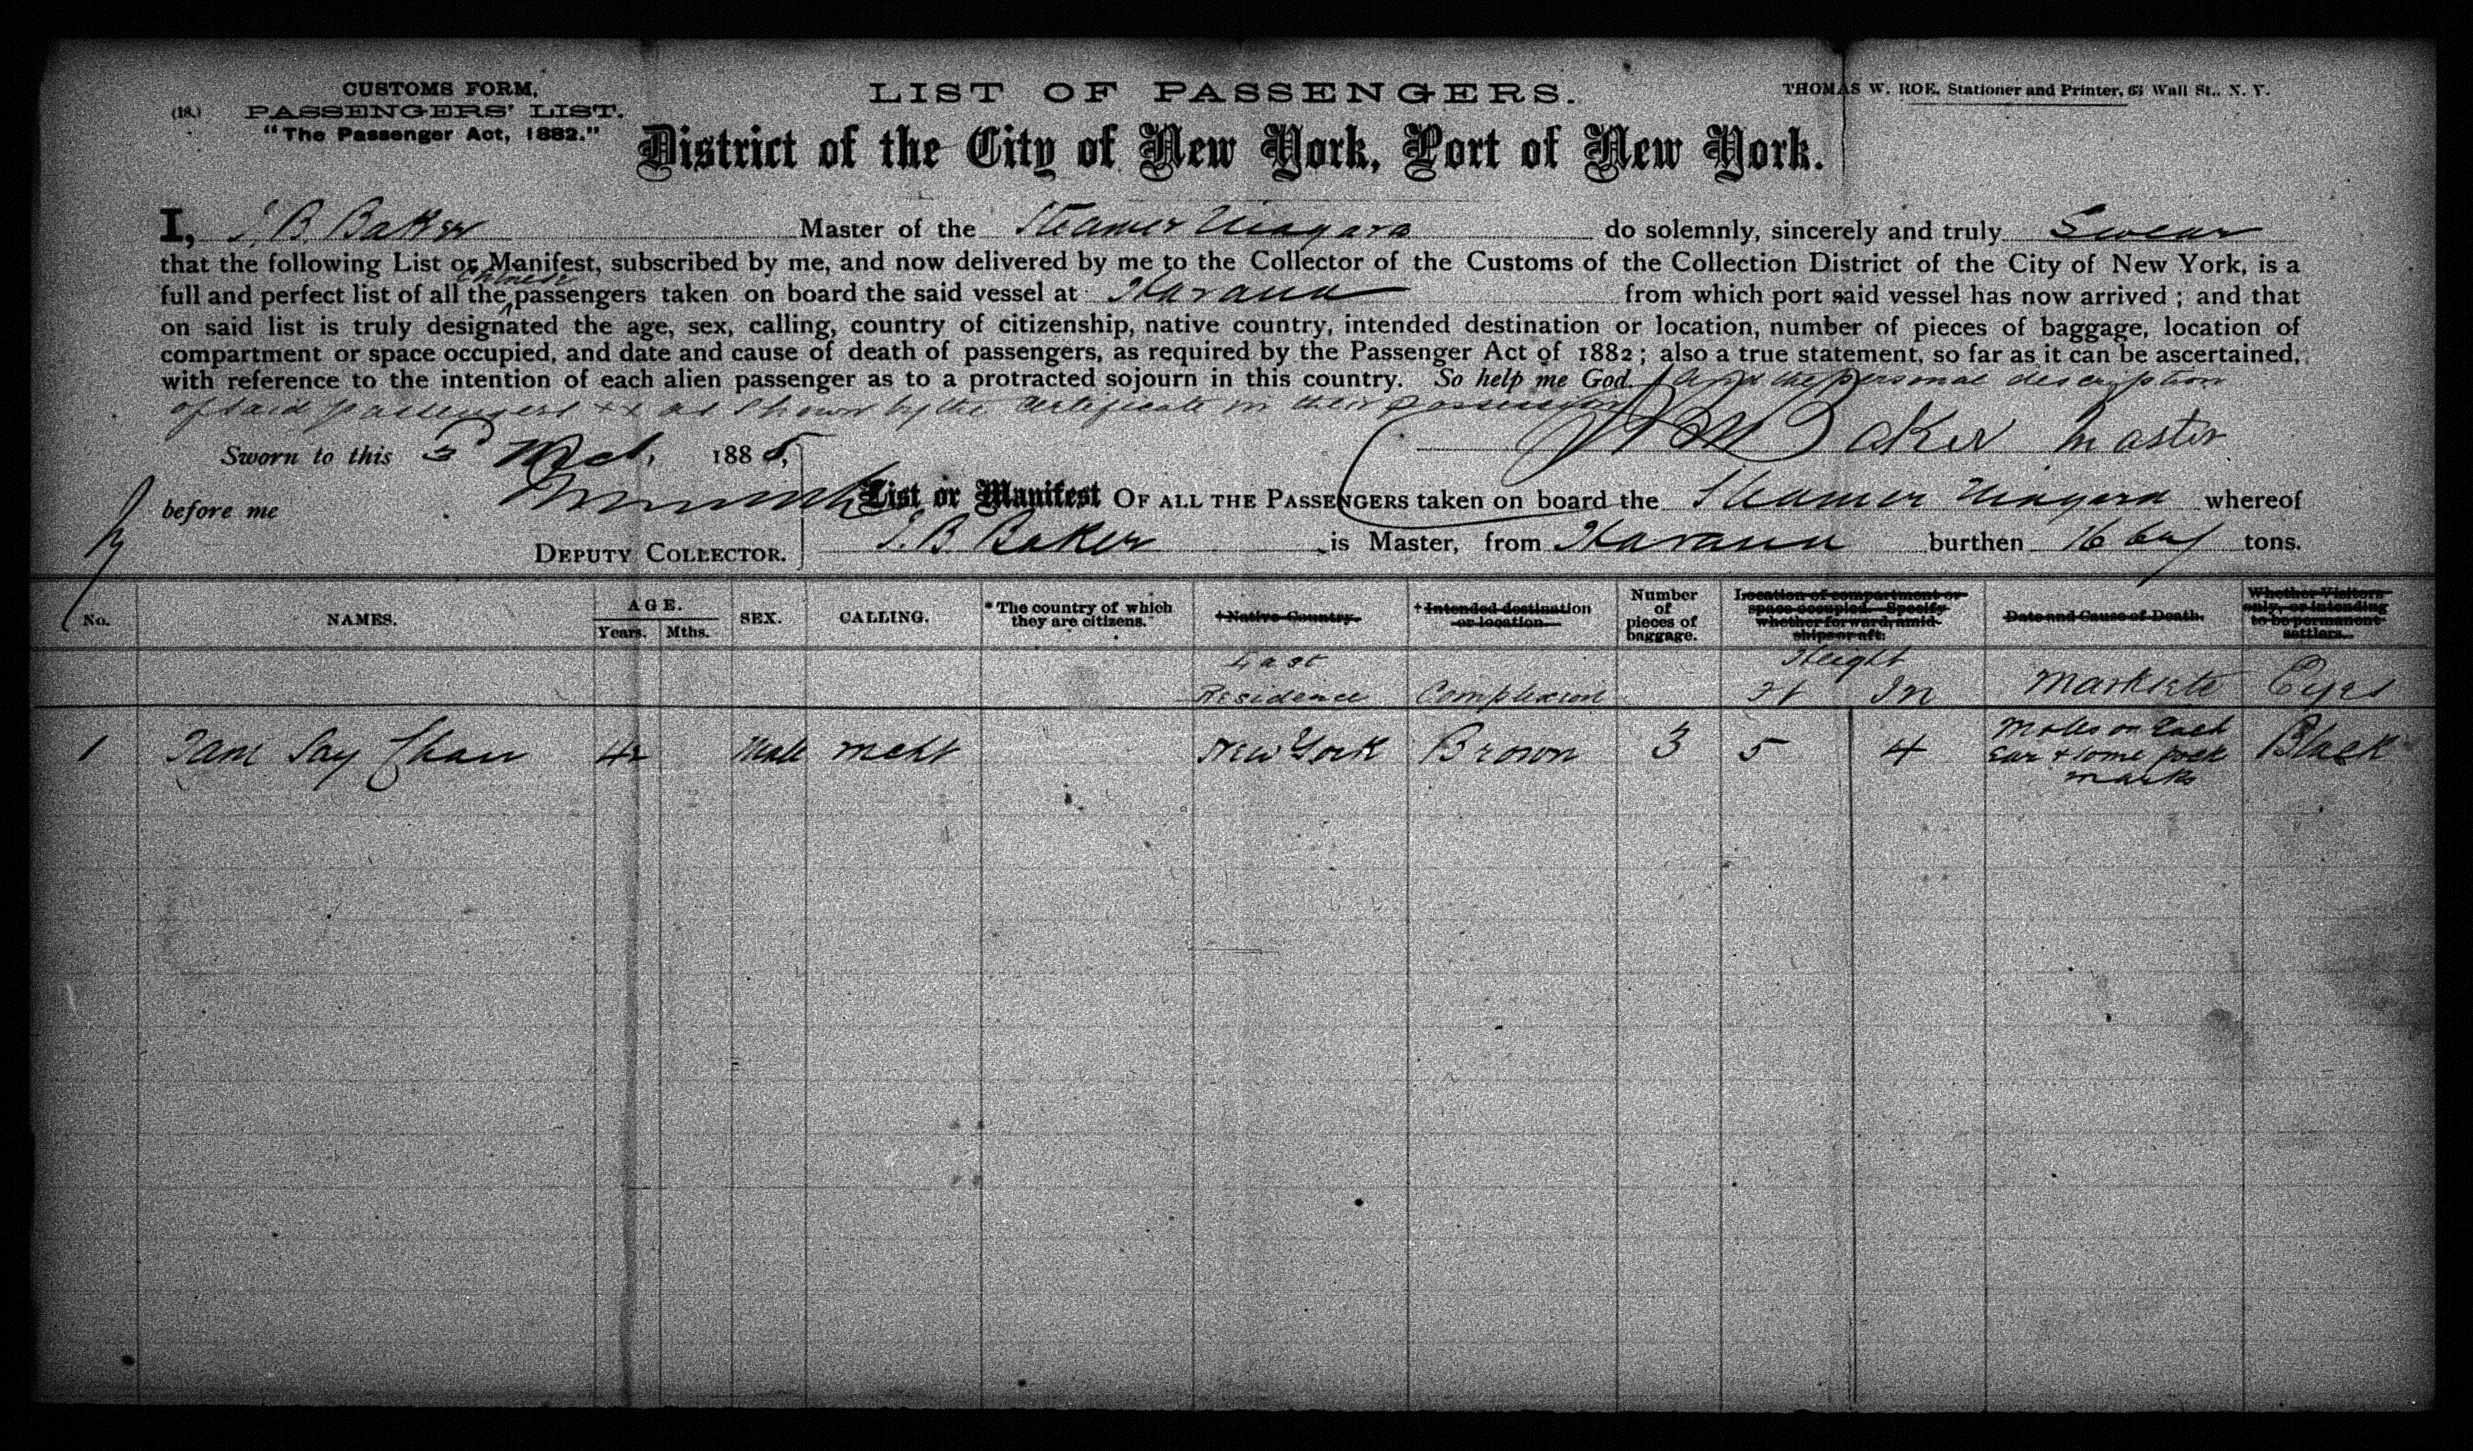 CUSTOMS FORM,
(18.) PASSENGERS' LIST.
"The Passenger Act, 1882."
LIST OF PASSENGERS.
THOMAS W. ROE, Stationer and Printer, 63 Wall St., N. Y.
District of the City of New York, Port of New York.
I, J. B. Baker Master of the Steamer Niagara do solemnly, sincerely and truly Swear
that the following List or Manifest, subscribed by me, and now delivered by me to the Collector of the Customs of the Collection District of the City of New York, is a
Chinese
full and perfect list of all the passengers taken on board the said vessel at Havana from which port said vessel has now arrived; and that
on said list is truly designated the age, sex, calling, country of citizenship, native country, intended destination or location, number of pieces of baggage, location of
compartment or space occupied, and date and cause of death of passengers, as required by the Passenger Act of 1882; also a true statement, so far as it can be ascertained,
with reference to the intention of each alien passenger as to a protracted sojourn in this country. So help me God. And the personal description
of said passengers as shown by the certificate in their possession
Sworn to this 3 1885,
Baker Master
before me
DEPUTY COLLECTOR.
List or Manifest OF ALL THE PASSENGERS taken on board the Steamer Niagara whereof
J. B. Baker is Master, from Havana burthen tons.
No. NAMES. AGE. Years. Mths. SEX. CALLING. * The country of which they are citizens. † Native Country. † Intended destination or location. Number of pieces of baggage. Location of compartment or space occupied. Specify whether forward, amidships or aft. Date and Cause of Death. Whether Visitors only, or intending to be permanent settlers.
Last Height
Residence Complexion Ft In Marks etc Eyes
1 Tam Say Chan 42 Male Mcht New York Brown 3 5 4 Moles on Each Ear & some pock marks Black